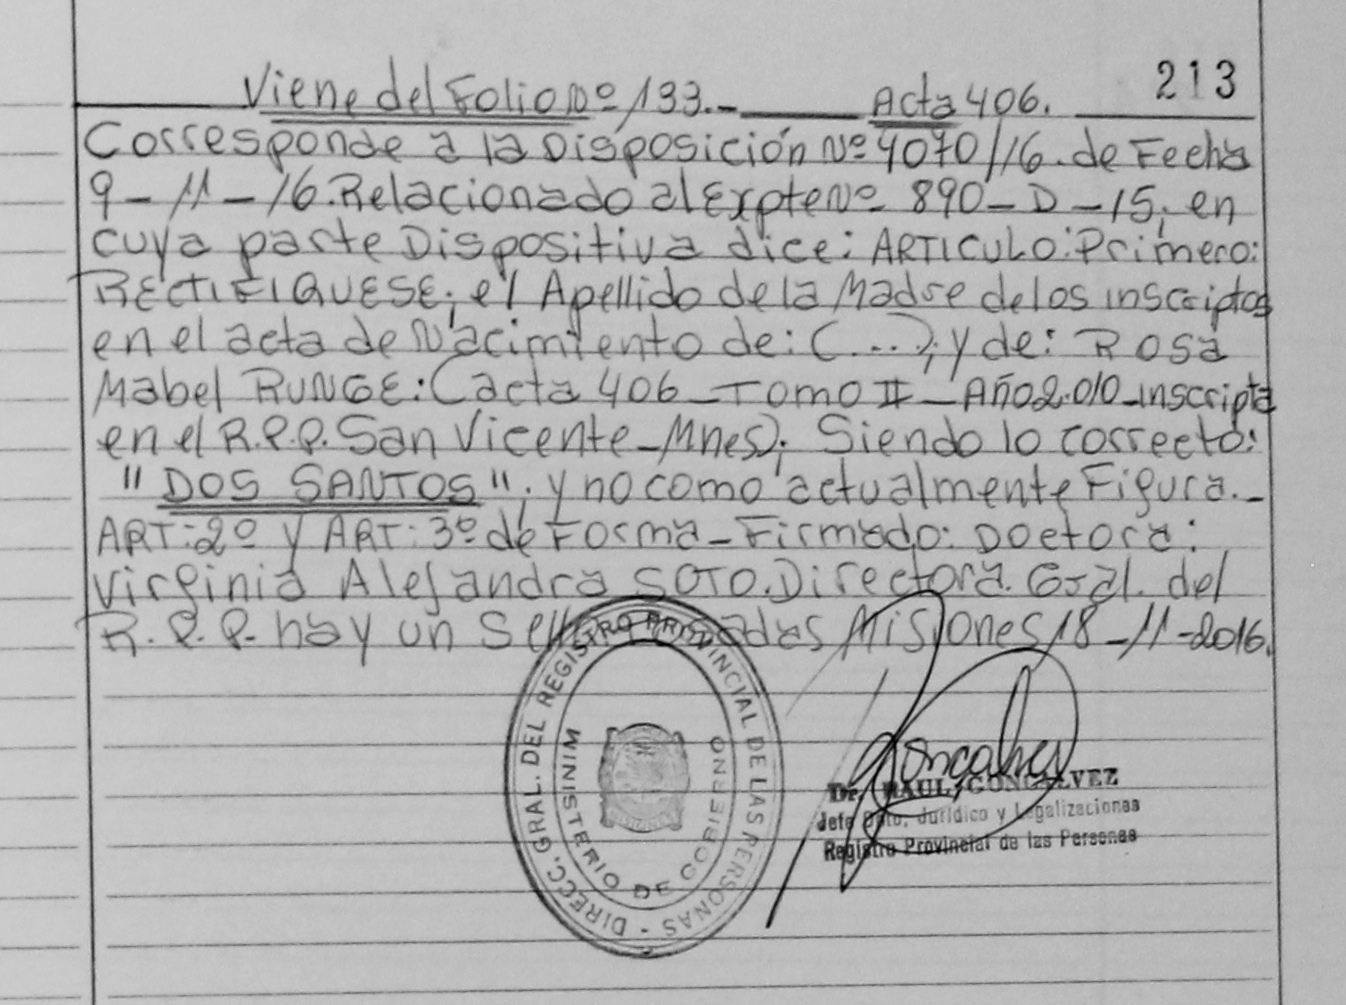 213
Viene del Folio Nº 133.- Acta 406.
Corresponde a la Disposición Nº 4070/16. de Fecha
9-11-16. Relacionado al Expte Nº 890-D-15; en
cuya parte Dispositiva dice: ARTICULO: Primero:
RECTIFIQUESE; el Apellido de la Madre de los inscriptos
en el acta de Nacimiento de: (...); y de: ROSA
Mabel RUNGE: (acta 406-Tomo II-Año 2.010-inscripta
en el R.P.P. San Vicente-Mnes); Siendo lo correcto:
"DOS SANTOS"; y no como actualmente Figura.-
ART: 2º y ART: 3º de Forma-Firmado: Doctora:
Virginia Alejandra SOTO. Directora. Gral. del
R.P.P. hay un Sello Posadas Misiones 18-11-2016.
DIRECC. GRAL. DEL REGISTRO PROVINCIAL DE LAS PERSONAS -
MINISTERIO DE GOBIERNO
Dr. RAUL GONCALVEZ
Jefe Dpto. Jurídico y Legalizaciones
Registro Provincial de las Personas